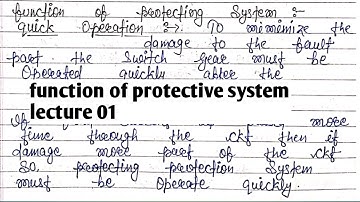 function of protecting System :-
Quick Operation :->. To minimize the
damage to the fault
part the Switch Gear must be
Operated quickly after the
function of protective system
lecture 01
If more
time through the ckt then it
damage more part of the ckt
So, protecting protection System
must be Operate quickly.